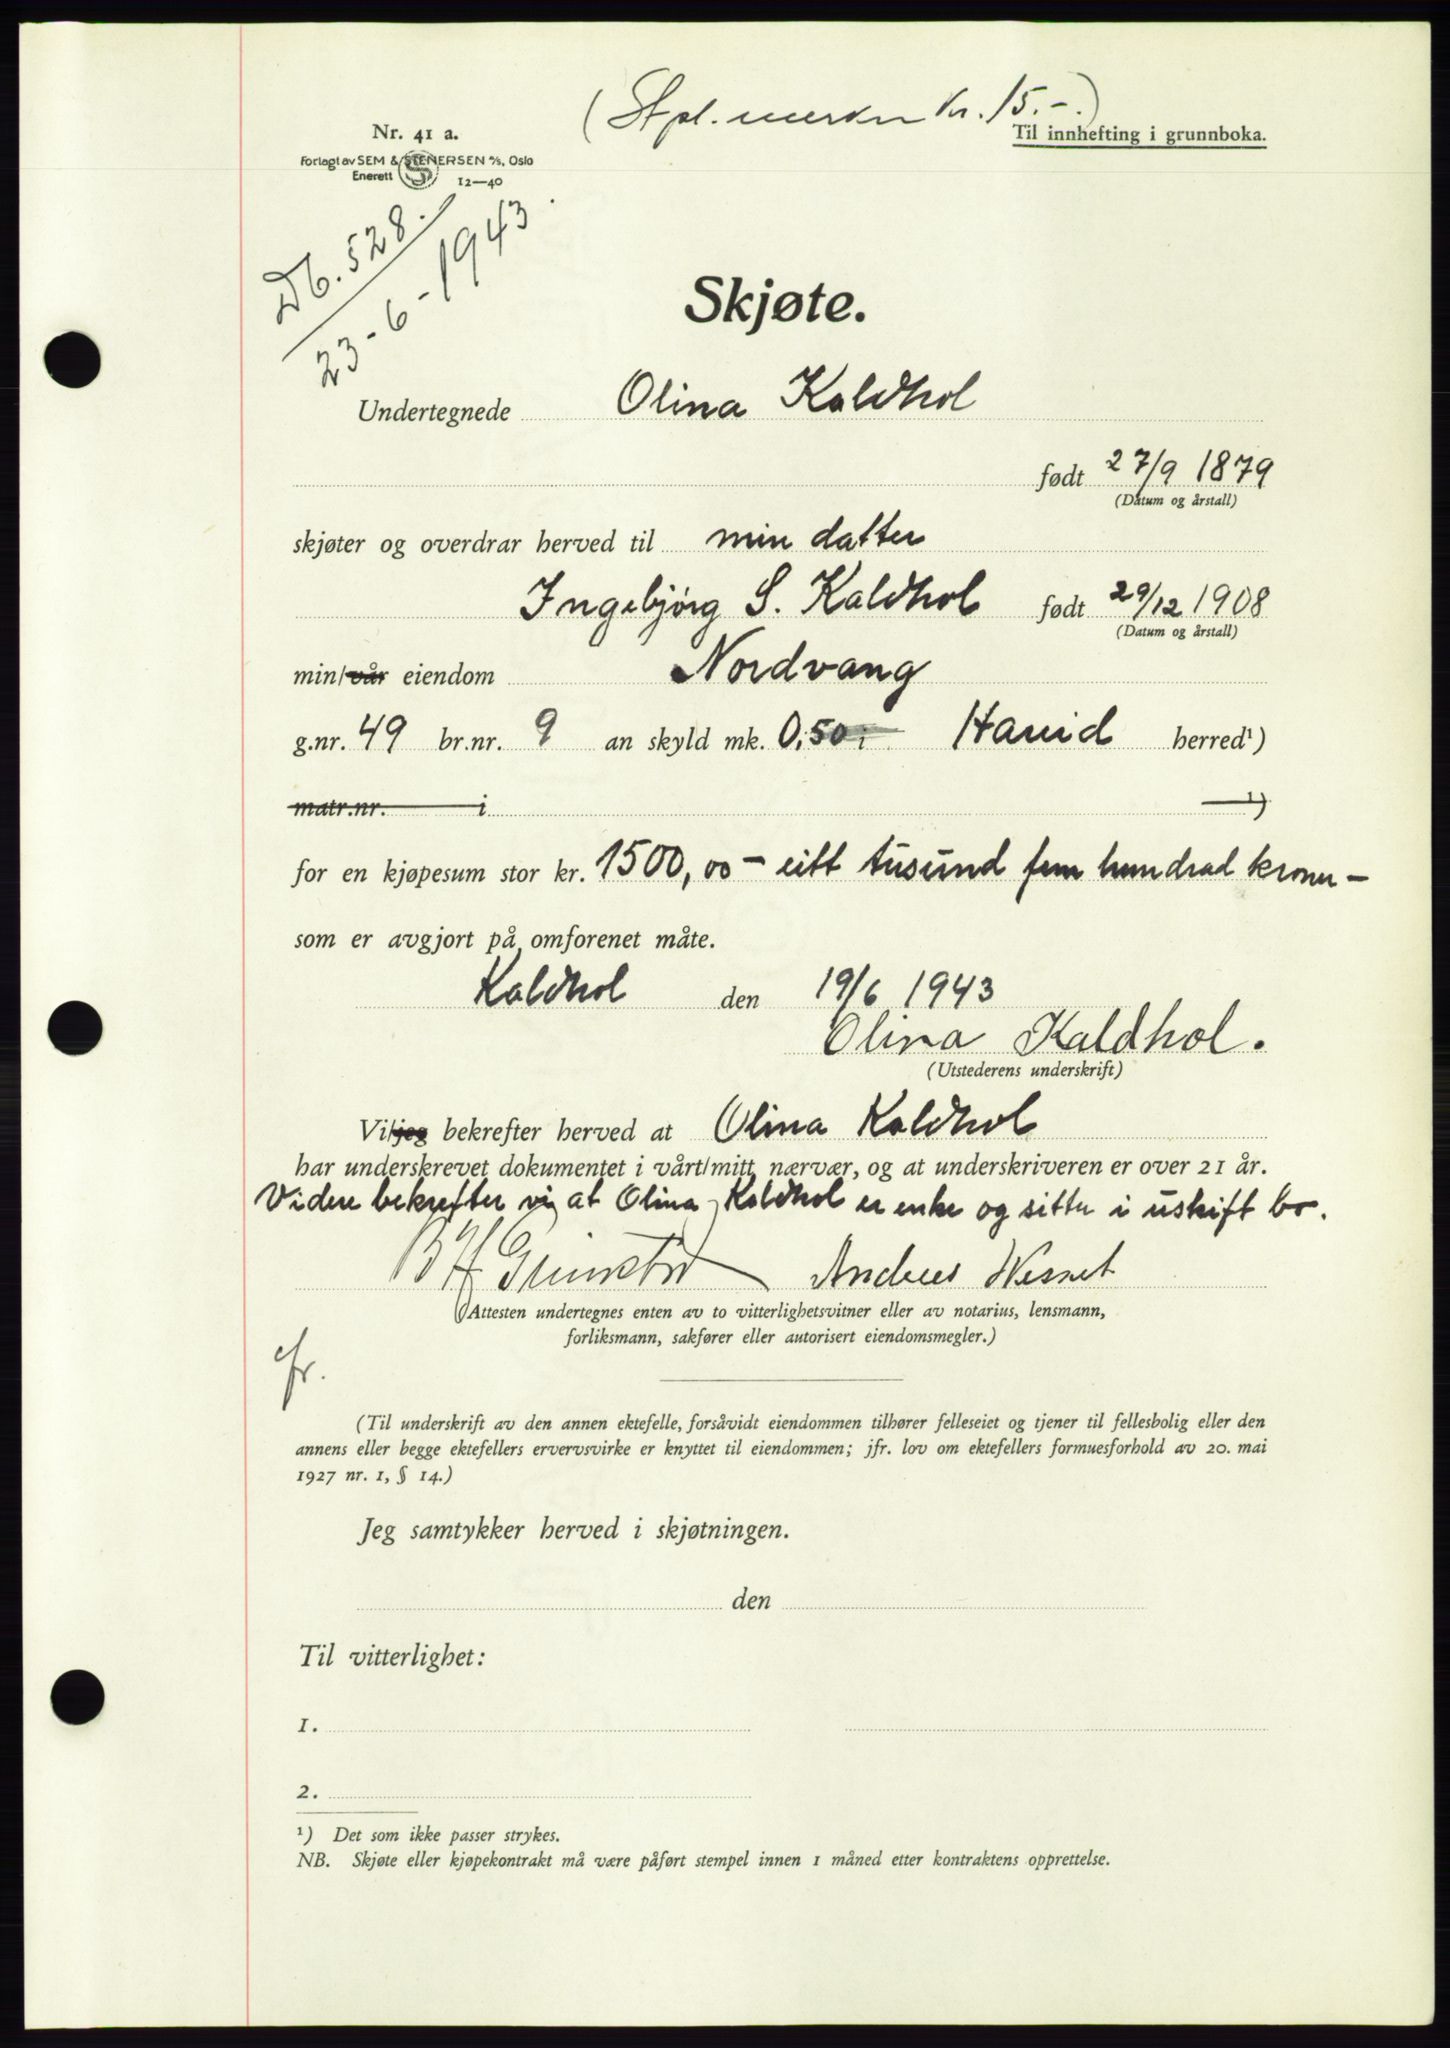 (Stpl. merker kr. 15.-.)
Nr. 41 a.
Til innhefting i grunnboka.
Forlagt av SEM & STENERSEN A/S, Oslo
Enerett
12—40
Db. 528.
23-6-1943.
Skjøte.
Undertegnede Olina Kaldhol
født 27/9 1879
(Datum og årstall)
skjøter og overdrar herved til min datter
Ingebjørg S. Kaldhol født 29/12 1908
(Datum og årstall)
min/vår eiendom Nordvang
g.nr. 49 br.nr. 9 an skyld mk. 0,50 i Hareid herred¹)
matr.nr. i ¹)
for en kjøpesum stor kr. 1500,00 — eitt tusund fem hundrad kroner —
som er avgjort på omforenet måte.
Kaldhol den 19/6 1943
Olina Kaldhol.
(Utstederens underskrift)
Vi/jeg bekrefter herved at Olina Kaldhol
har underskrevet dokumentet i vårt/mitt nærvær, og at underskriveren er over 21 år.
Videre bekrefter vi at Olina Kaldhol er enke og sitter i uskift bo.
B H Grimstad Andreas
(Attesten undertegnes enten av to vitterlighetsvitner eller av notarius, lensmann,
forliksmann, sakfører eller autorisert eiendomsmegler.)
(Til underskrift av den annen ektefelle, forsåvidt eiendommen tilhører felleseiet og tjener til fellesbolig eller den
annens eller begge ektefellers ervervsvirke er knyttet til eiendommen; jfr. lov om ektefellers formuesforhold av 20. mai
1927 nr. 1, § 14.)
Jeg samtykker herved i skjøtningen.
den
Til vitterlighet:
1.
2.
¹) Det som ikke passer strykes.
NB. Skjøte eller kjøpekontrakt må være påført stempel innen 1 måned etter kontraktens opprettelse.